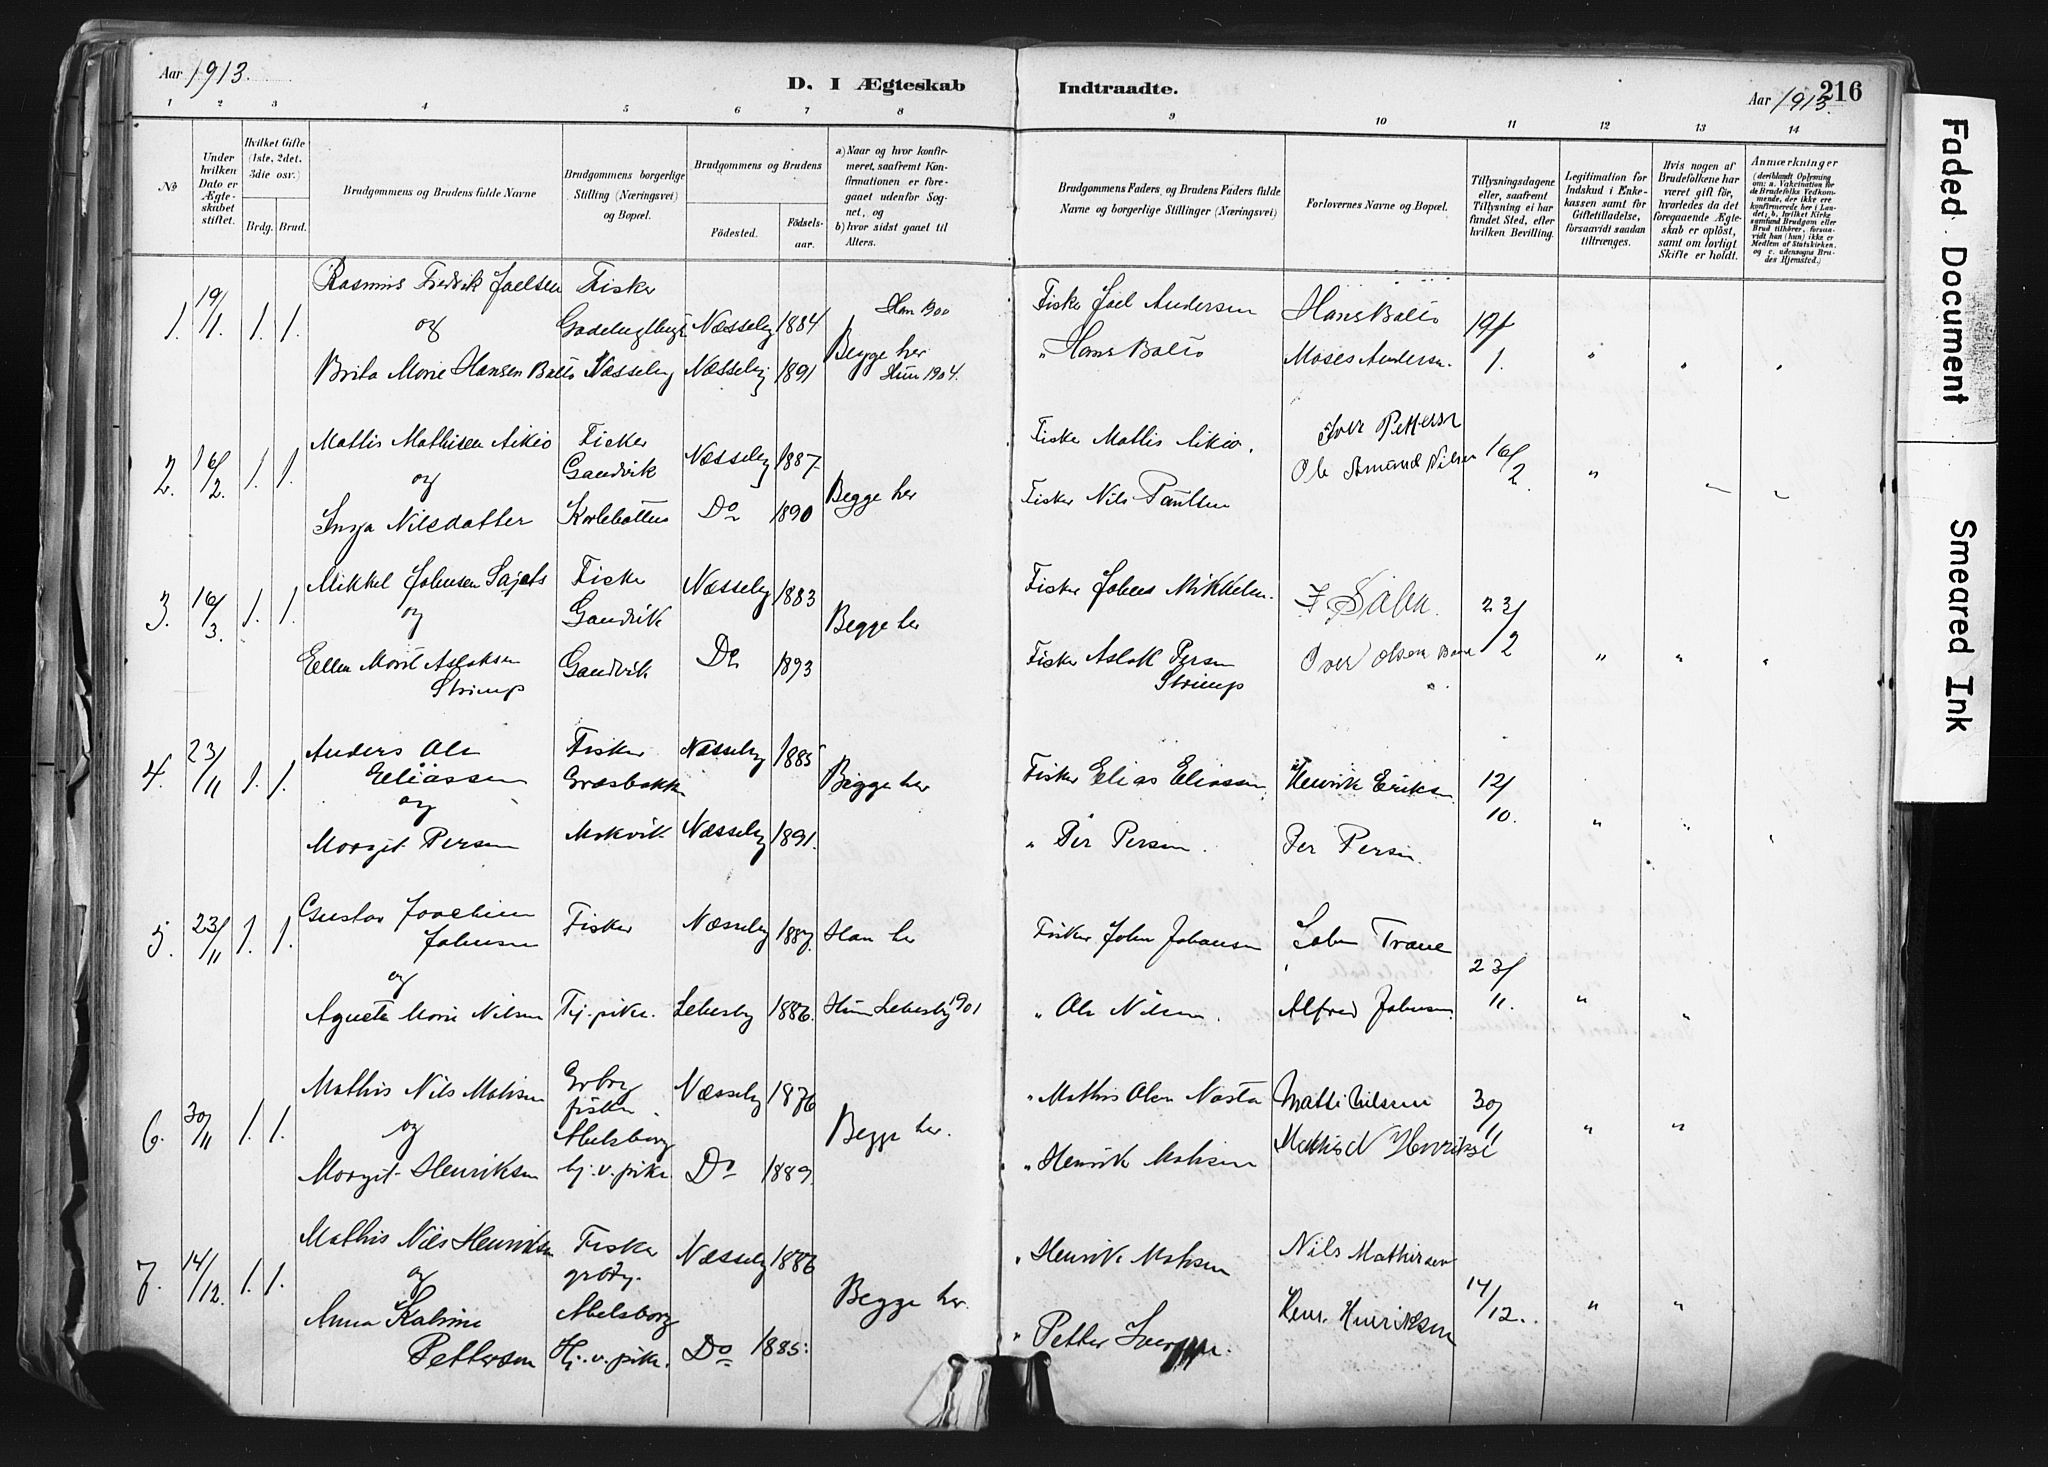 Aar 1913.
D. I Ægteskab
Indtraadte.
Aar 1913.
216
1 2 3 4 5 6 7 8 9 10 11 12 13 14
No
Under hvilken Dato er Ægteskabet stiftet.
Hvilket Gifte (1ste, 2det, 3die osv.)
Brdg. Brud.
Brudgommens og Brudens fulde Navne
Brudgommens borgerlige Stilling (Næringsvei) og Bopæl.
Brudgommens og Brudens
Fødested.
Fødselsaar.
a) Naar og hvor konfirmeret, saafremt Konfirmationen er foregaaet udenfor Sognet, og
b) hvor sidst gaaet til Alters.
Brudgommens Faders, og Brudens Faders fulde Navne og borgerlige Stillinger (Næringsvei)
Forlovernes Navne og Bopæl.
Tillysningsdagene eller, saafremt Tillysning ei har fundet Sted, efter hvilken Bevilling.
Legitimation for Indskud i Enkekassen samt for Giftetilladelse, forsaavidt saadan tiltrænges.
Hvis nogen af Brudefolkene har været gift før, hvorledes da det foregaaende Ægteskab er opløst, samt om lovligt Skifte er holdt.
Anmærkninger (deriblandt Oplysning om: a. Vakcination for de Brudefolks Vedkommende, der ikke ere konfirmerede her i Landet; b. hvilket Kirkesamfund Brudgom eller Brud tilhører, forsaavidt han (hun) ikke er Medlem af Statskirken, og c. udensogns Brudes Hjemsted.)
1. 19/1. 1. 1. Rasmus Fredrik Joelsen Fisker
og Næsseby 1884 Han 1900
Brita Marie Hansen Balto Næsseby Næsseby 1891 Begge her Hun 1904.
Fisker Joel Andersen Hans Balto 19/1.
" Hans Balto Moses Andersen " " "
2. 16/2. 1. 1. Mattis Mathisen Aikio Fisker Gandvik Næsseby 1887.
og Begge her
Inga Nilsdatter Do 1890
Fisker Mattis Aikio. Iver Pettersen
Ole Amund Nilsen 16/2. "
Fisker Nils Paulsen
3. 16/3. 1. 1. Mikkel Johnsen Sajets Fisker Gandvik Næsseby 1883
og Begge her
Ellen Marit Aslaksen Strimp Gandvik Do 1893
Fisker Johns Mikkelsen. 23/2
Fisker Aslak Persen Strimp Iver Olsen " " "
4. 23/11 1. 1. Anders Ole Eliassen Fisker Græsbakken Næsseby 1885
og Begge her
Margit Persen Næsseby 1891.
Fisker Elias Eliassen. Henrik Eriksen 12/10.
" Per Persen. Per Persen. " " "
5. 23/11 1. 1. Gustav Joachim Johnsen Fisker Næsseby 1887. Han her
og
Agneta Marie Nilsen Tj. pike. Lebesby 1886. Hun Lebesby 1901
Fisker John Johansen Trane 23/11.
" Ole Nilsen. Alfred Johnsen " "
6. 30/11 1. 1. Mathis Nils Mathisen fisker. Abelsborg Næsseby 1876
og Begge her.
Margit Henriksen hj. v. pike. Do 1889.
" Mathis Olsen Nasta Matti Nilsen 30/11 " "
" Henrik Mathisen Henriksen
7. 14/12. 1. 1. Mathis Nils Henriksen Fisker Abelsborg Næsseby 1886
og Begge her.
Anna Katrine Pettersen Hj. v. pike. Do 1885.
" Henrik Mathisen Nils Mathisen 14/12. " "
" Petter Henr. Henriksen
Faded Document
Smeared Ink